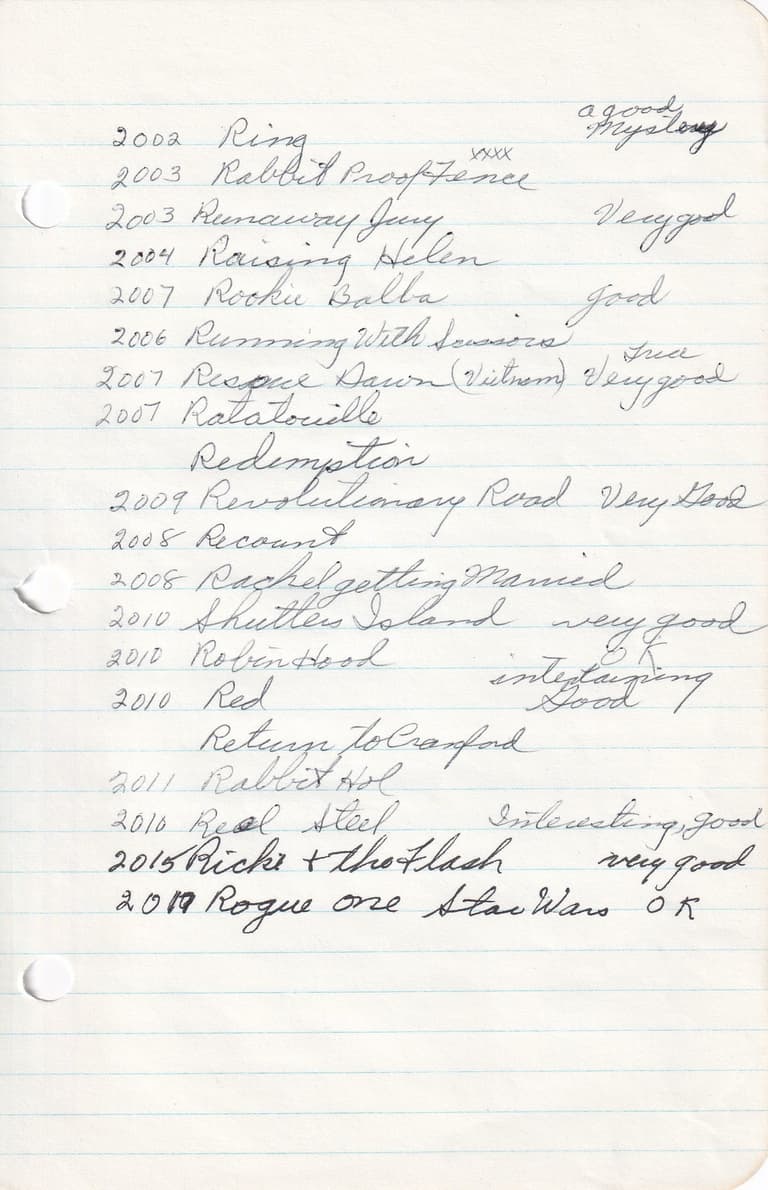 2002 Ring a good Mystery
2003 Rabbit Proof Fence xxxx
2003 Runaway Jury Very good
2004 Raising Helen
2007 Rookie Balba good
2006 Running With Scissors
2007 Rescue Dawn (Vietnam) True Very good
2007 Ratatouille
Redemption
2009 Revolutionary Road Very Good
2008 Recount
2008 Rachel getting Married
2010 Shutters Island very good
2010 Robin Hood OK
2010 Red intertaining Good
Return to Cranford
2011 Rabbit Hol
2010 Real Steel Interesting, good
2015 Ricki + tho Flash very good
2017 Rogue one Star Wars OK